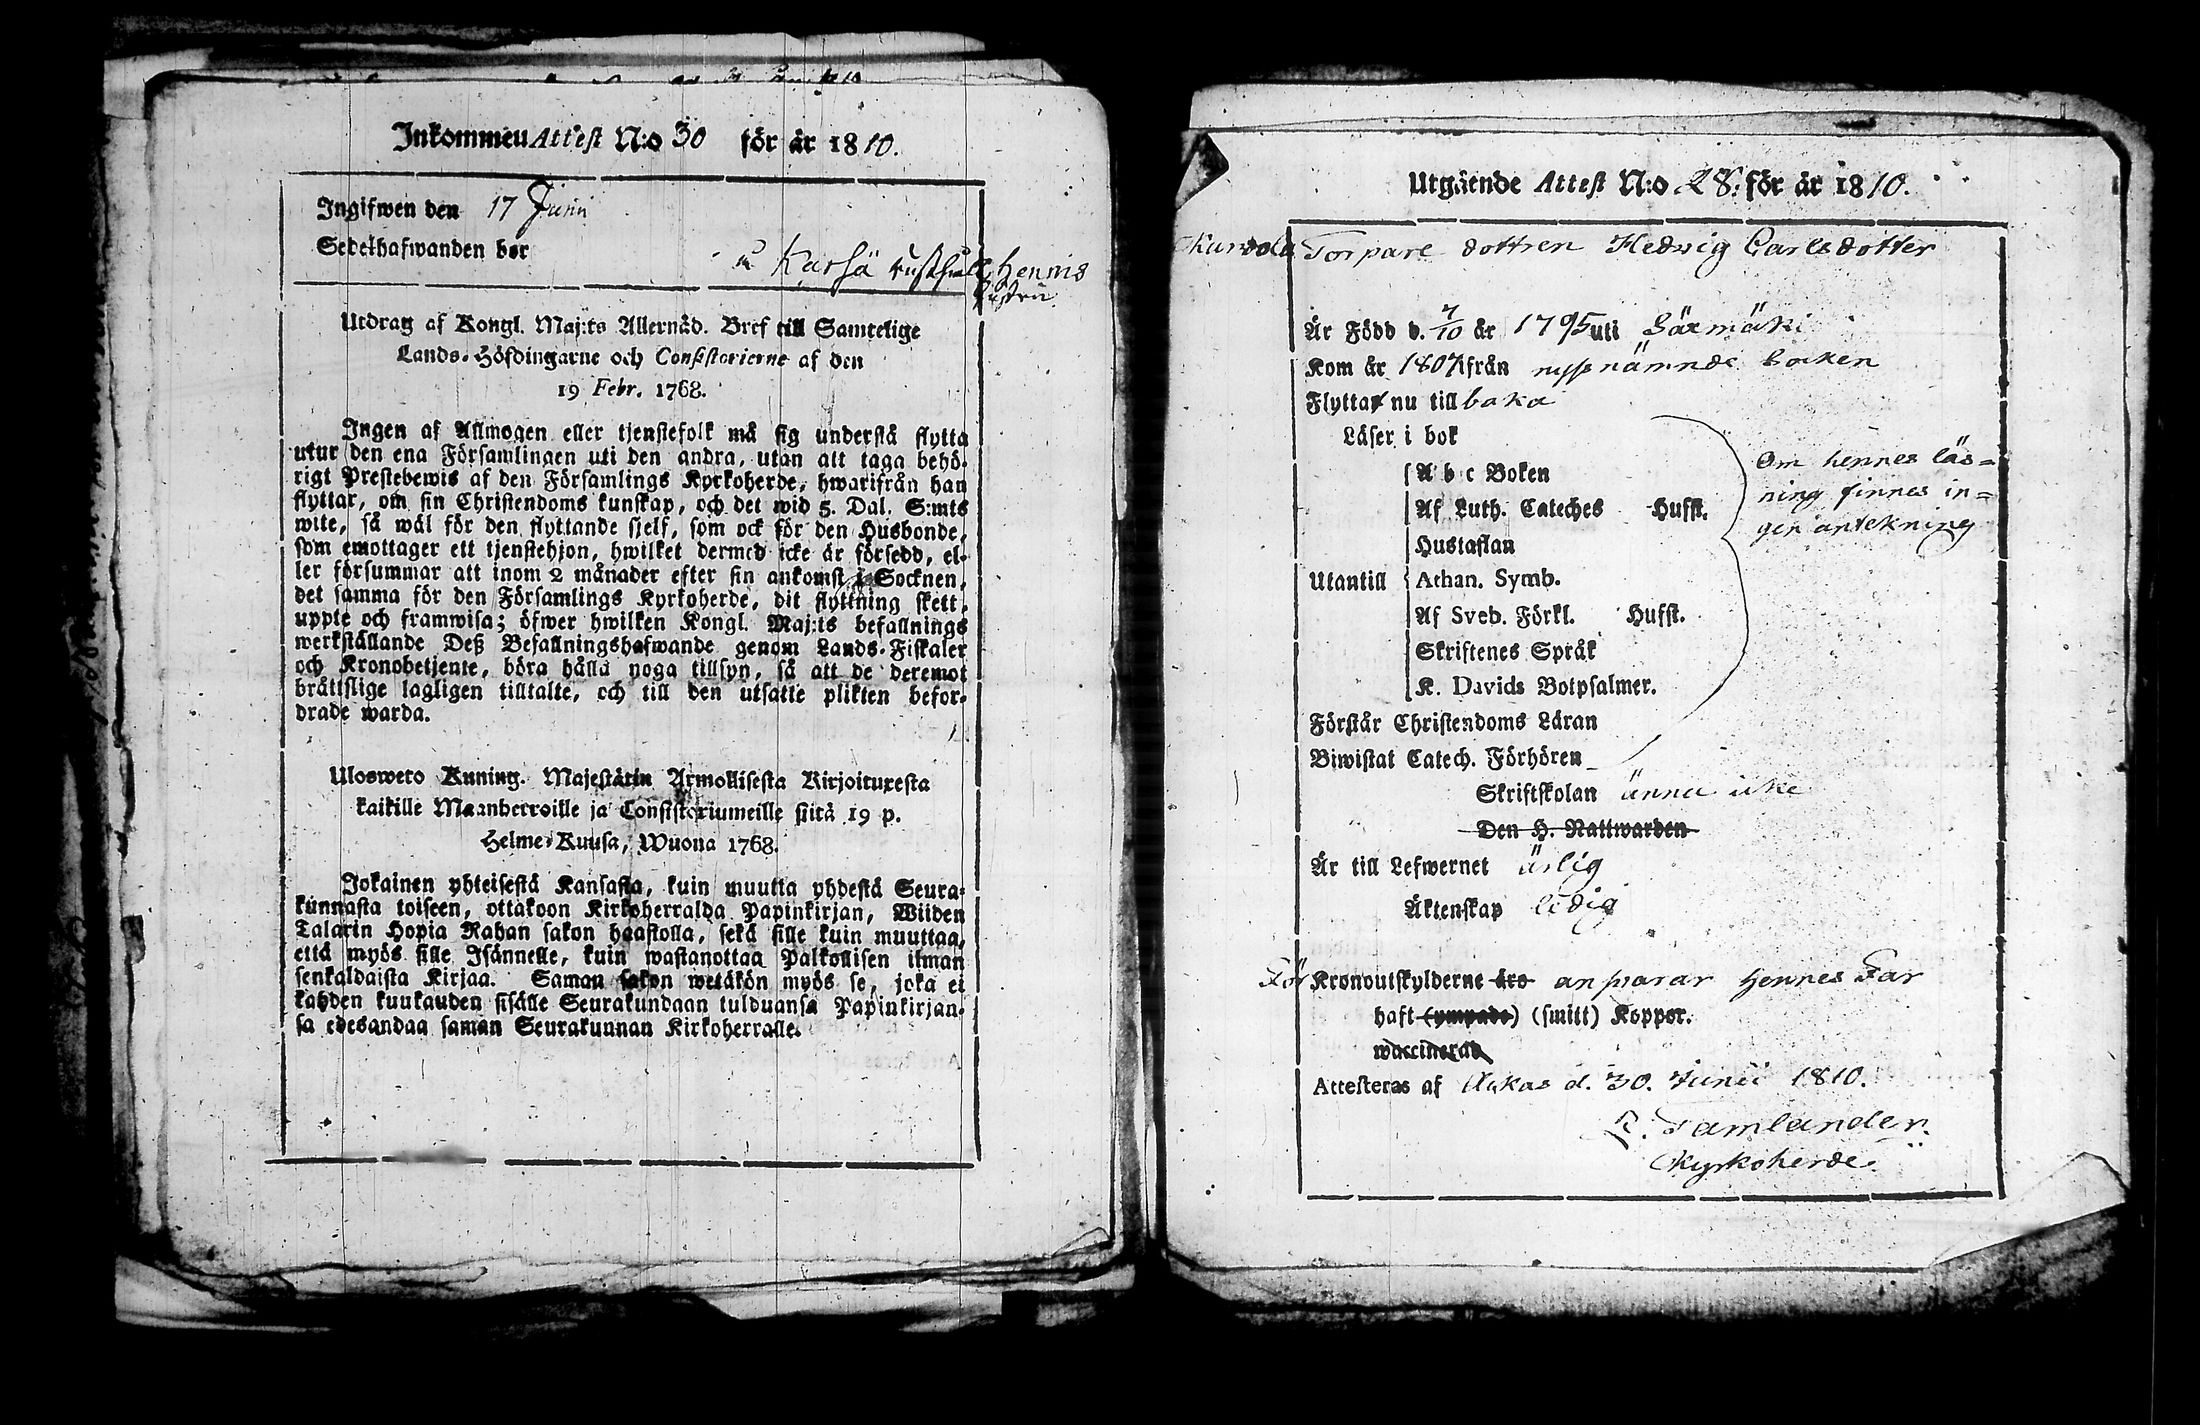 Inkommen Attest N:o 30 för år 1810.
Ingifwen den 17 Junii
Sedelhafwanden bor
Karsä rusthåll Hennis
Utdrag af Kongl. Maj:ts Allernåd. Bref till Samtelige
Lands-Höfdingarne och Consistorierne af den
19 Febr. 1768.
Ingen af Allmogen eller tjenstefolk må sig understå flytta
utur den ena Församlingen uti den andra, utan att taga behö-
rigt Prestebewis af den Församlings Kyrkoherde, hwarifrån han
flyttar, om sin Christendoms kunskap, och det wid 5. Dal. S:mts
wite, så wäl för den flyttande sjelf, som ock för den Husbonde,
som emottager ett tjenstehjon, hwilket dermed icke är försedd, el-
ler försummar att inom 2 månader efter sin ankomst i Socknen,
det samma för den Församlings Kyrkoherde, dit flyttning skett,
uppte och framwisa; öfwer hwilken Kongl. Maj:ts befallnings
werkställande Deß Befallningshafwande genom Lands-Fiskaler
och Kronobetjente, böra hålla noga tillsyn, så att de deremot
bråttslige lagligen tilltalte, och till den utsatte plikten befor-
drade warda.
Ulosweto Kuning. Majestätin Armollisesta Kirjoituxesta
kaikille Maanherroille ja Consistoriumeille siitä 19 p.
Helme-Kuusa, Wuona 1768.
Jokainen yhteisestä Kansasta, kuin muutta yhdestä Seura-
kunnasta toiseen, ottakoon Kirkoherralda Papinkirjan, Wiiden
Talarin Hopia Rahan sakon haastolla, sekä sille kuin muuttaa,
että myös sille Isännelle, kuin wastanottaa Palkollisen ilman
senkaldaista Kirjaa. Saman sakon wetäkön myös se, joka ei
kahden kuukauden sisälle Seurakundaan tulduansa Papinkirjan-
sa edesandaa saman Seurakunnan Kirkoherralle.
Utgående Attest N:o 28. för år 1810.
Torpare dottren Hedwig Carlsdotter
Är Född d. 7/10 år 1795 uti Säxmäki
Kom år 1807 ifrån nyss nämnde Socken
Flyttar nu till baka
Läser i bok
A b c Boken
Om hennes läs=
ning finnes in=
gen antekning
Af Luth. Cateches Hufst.
Hustaflan
Utantill Athan. Symb.
Af Sveb. Förkl. Hufst.
Skriftenes Språk
K. Davids Botpsalmer.
Förstår Christendoms Läran
Biwistat Catech. Förhören
Skriftskolan ännu icke
Den H. Nattwarden
Är till Lefwernet ärlig
Äktenskap ledig
För Kronoutskylderne äro answarar hennes Far
haft (ympade) (smitt) Koppor.
waccinerad
Attesteras af Ackas d. 30. Junii 1810.
Tamlander
Kyrkoherde.